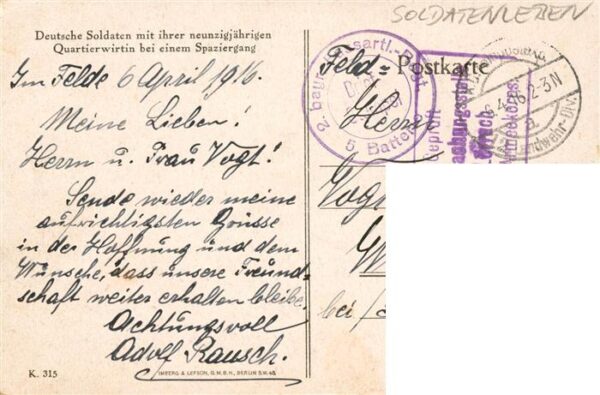 SOLDATENLEBEN
Deutsche Soldaten mit ihrer neunzigjährigen
Quartierwirtin bei einem Spaziergang
Im Felde 6 April 1916.
Meine Lieben!
Herrn u. Frau Vogt!
Sende wieder meine
aufrichtigsten Grüsse
in der Hoffnung und dem
Wunsche, dass unsere Freund-
schaft weiter erhalten bleibe.
Achtungsvoll
Adolf Rausch.
K. 315
IMBERG & LEFSON, G.M.B.H., BERLIN S.W. 48
Feld=Postkarte
Herrn
bei
2. bayr.
5. Batterie
Geprüft
6.4.16. 2-3N
Landwehr-Div.